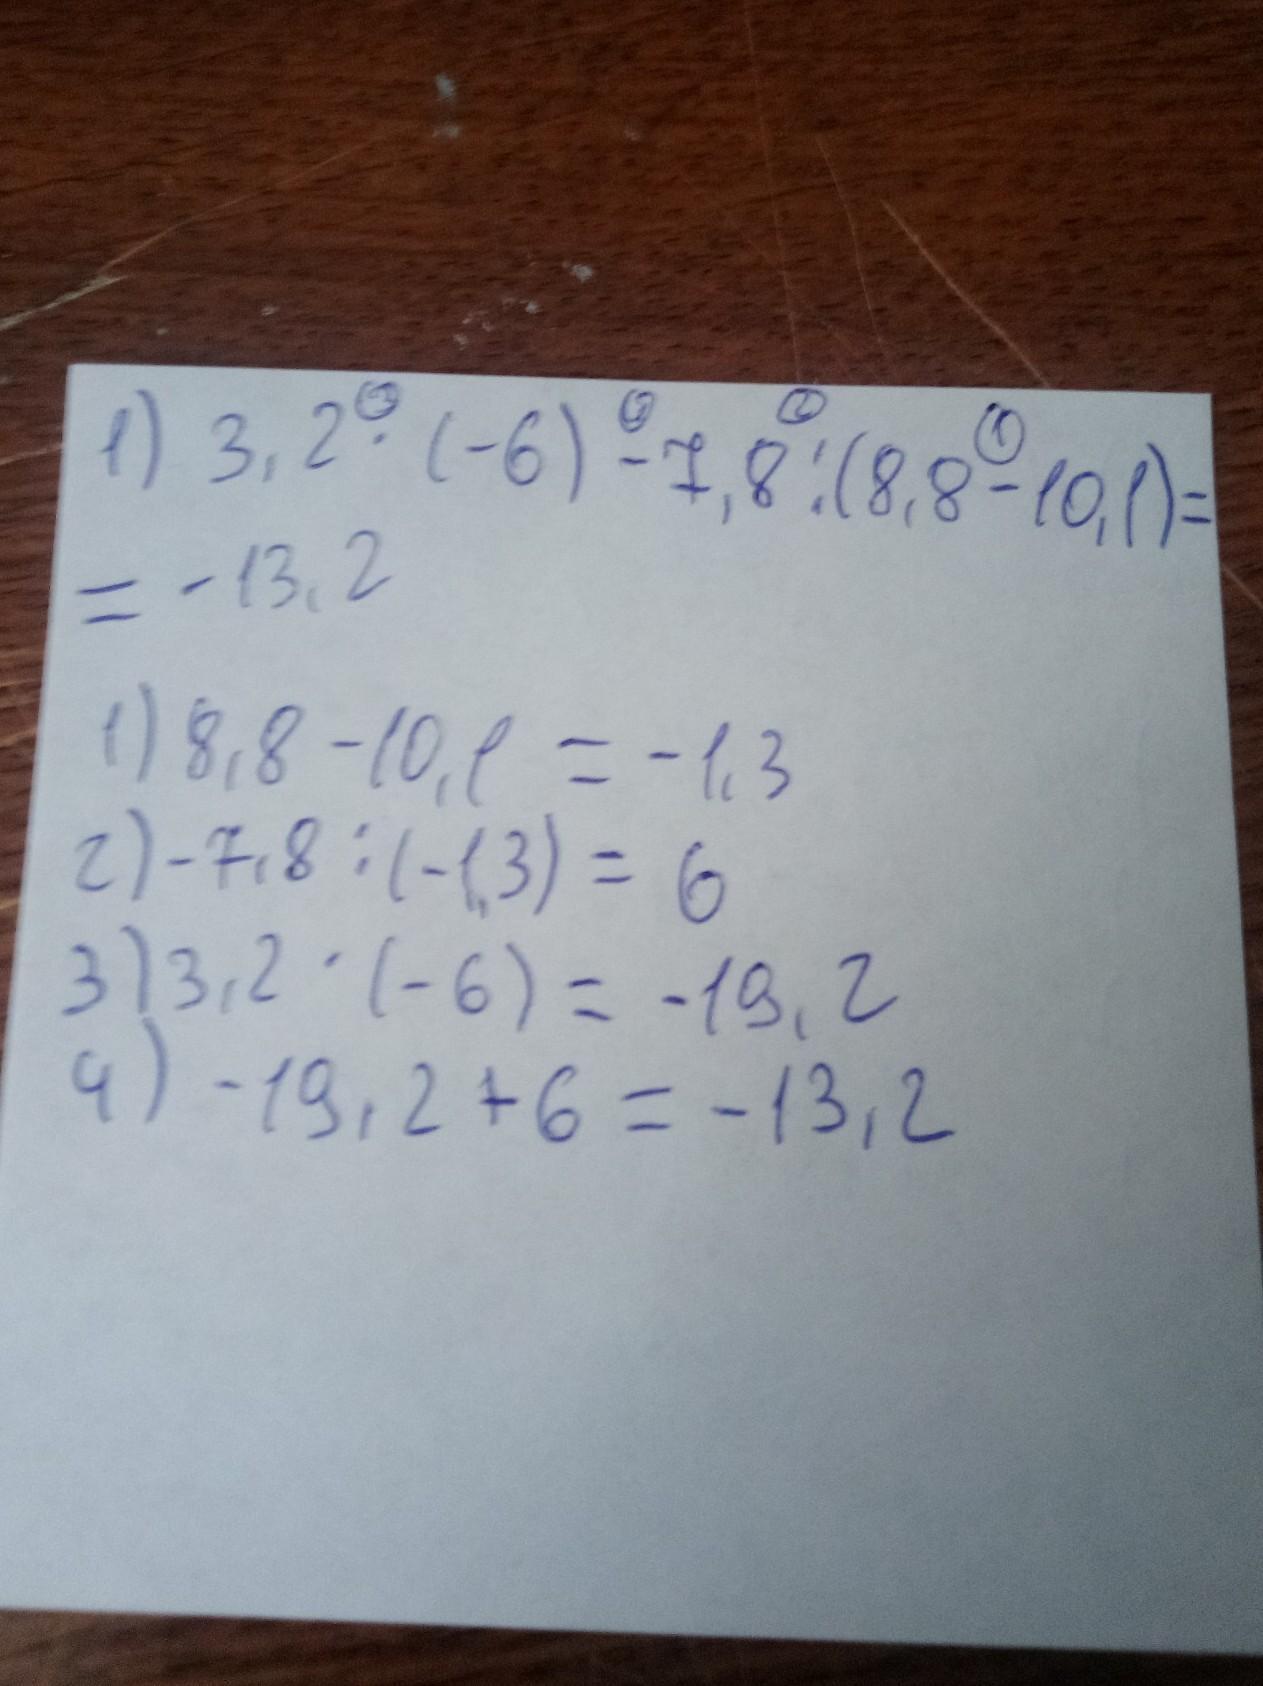 1) 3,2 · (-6) - 7,8 : (8,8 - 10,1) =
= - 13,2
1) 8,8 - 10,1 = -1,3
2) -7,8 : (-1,3) = 6
3) 3,2 · (-6) = -19,2
4) -19,2 + 6 = -13,2